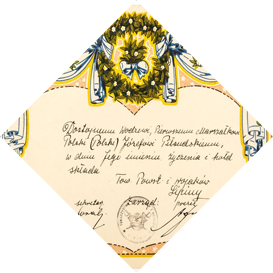 Dostojnemu Wodzowi, Pierwszemu Marszałkowi
Polski (Polski) Józefowi Piłsudskiemu,
w dniu Jego imienin życzenia i hołd
składa
Tow. Powst. i wojaków
Lipiny
zarząd: